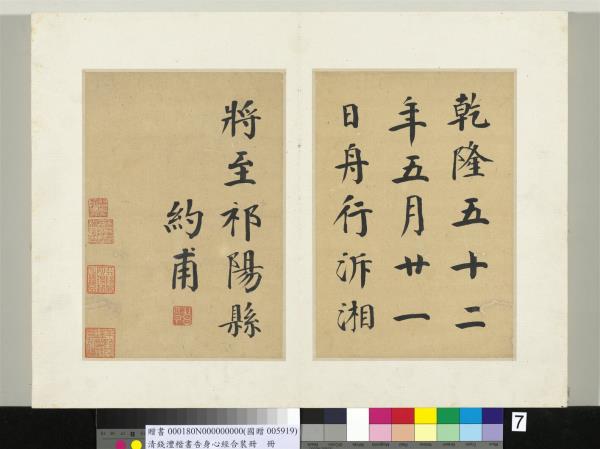 乾隆五十二
年五月廿一
日舟行泝湘
將至祁陽縣
約甫
贈書 000180N000000000(國贈 005919)
清錢灃楷書告身心經合裝冊 冊
7